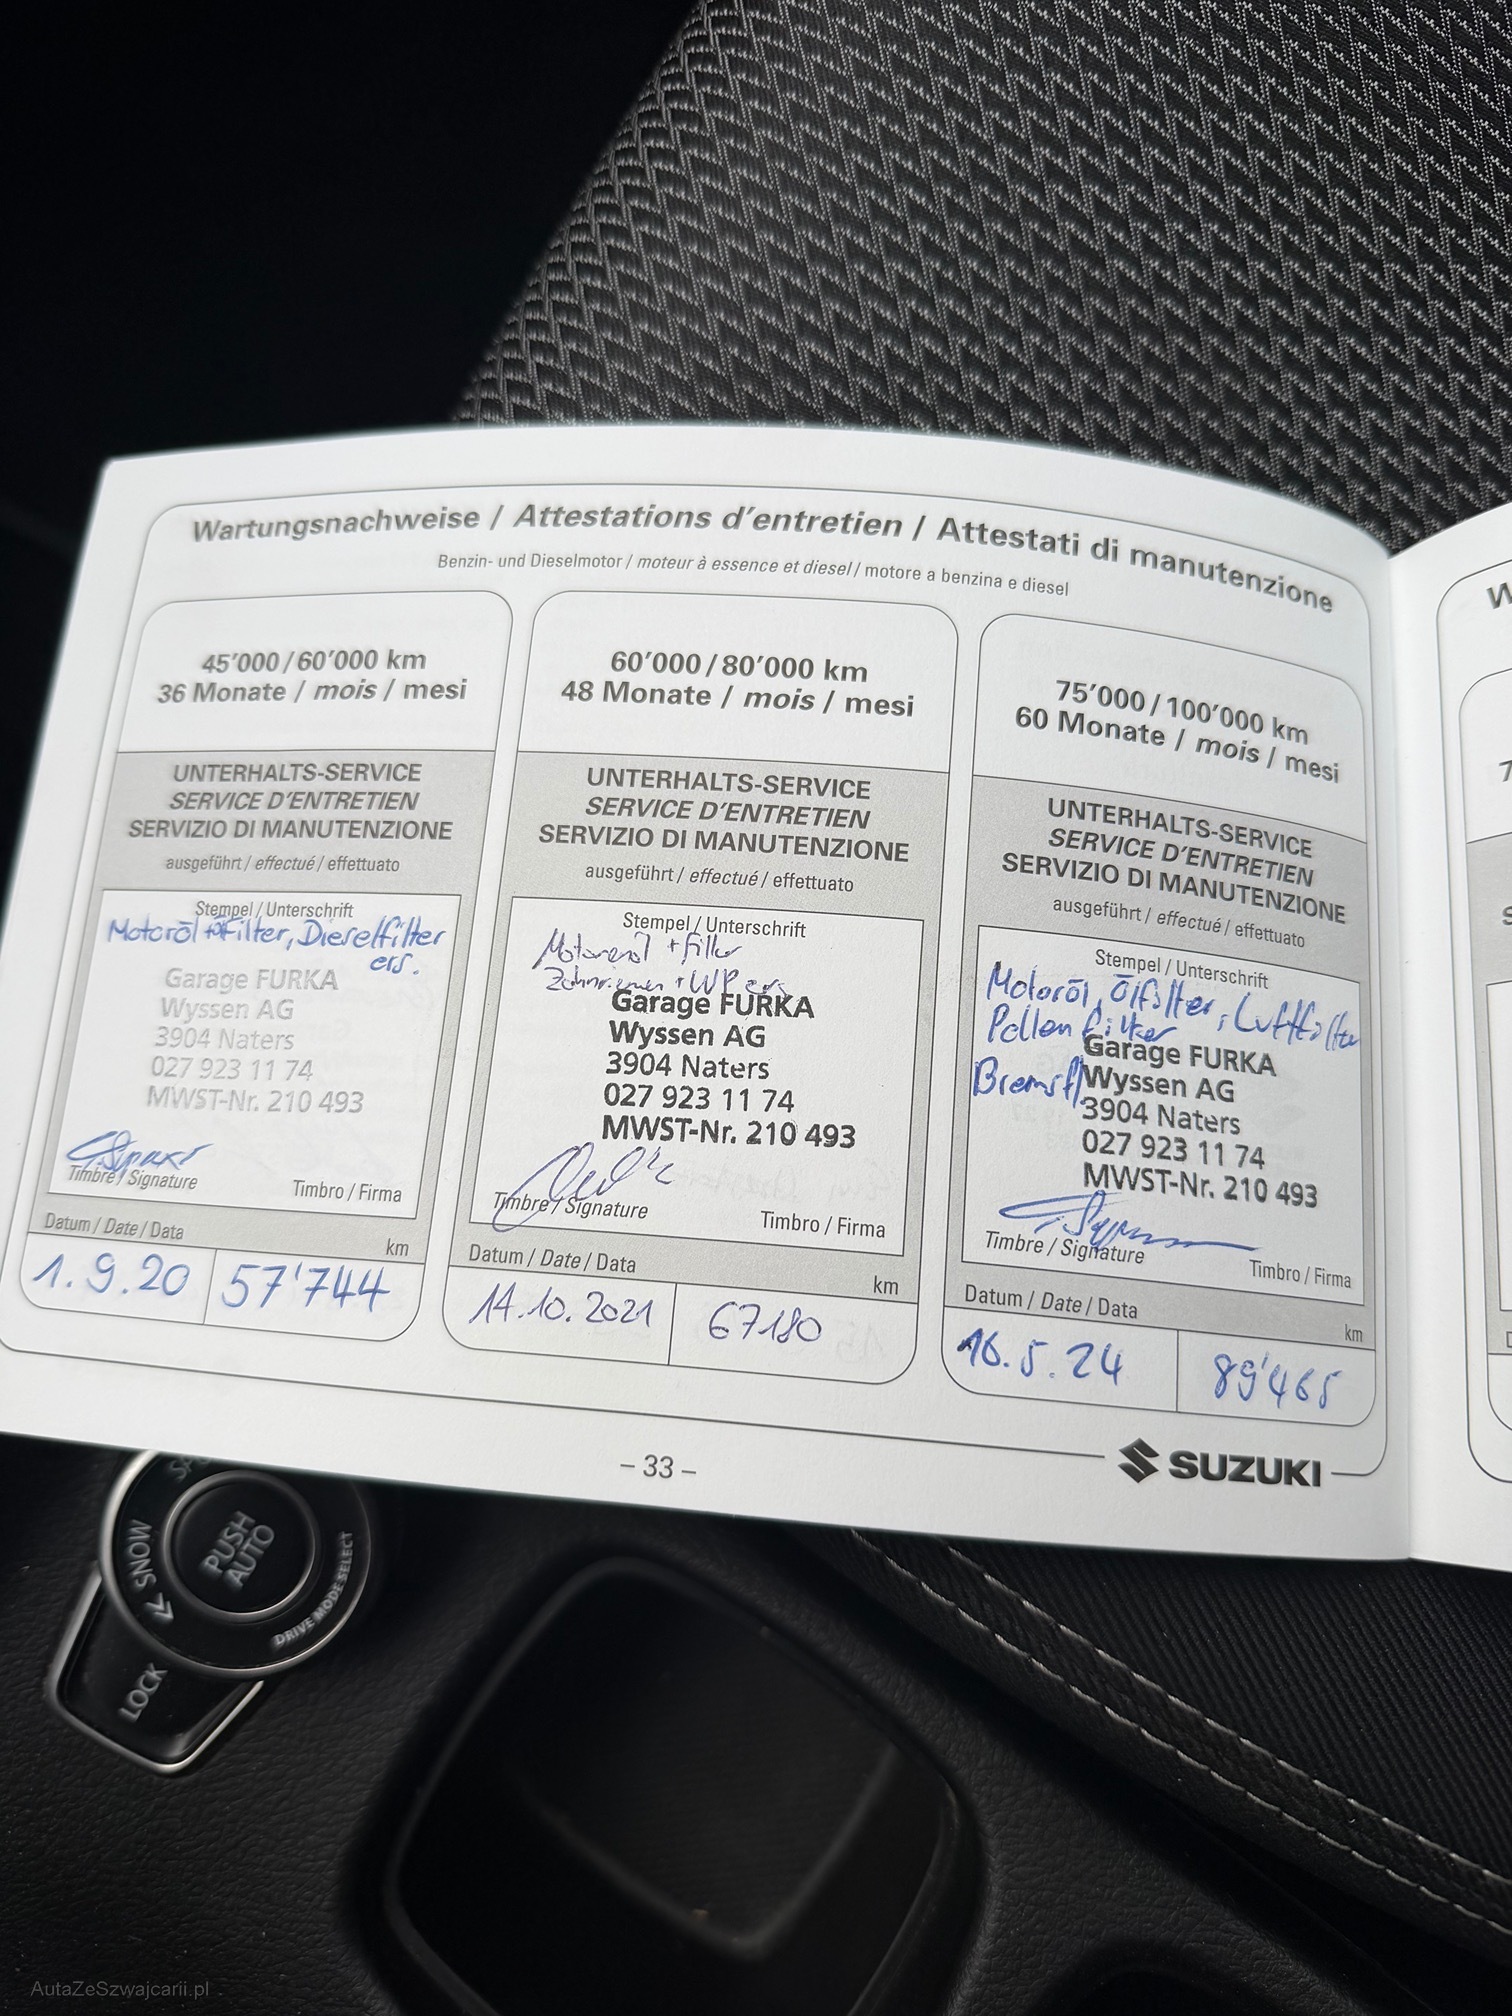 Wartungsnachweise / Attestations d'entretien / Attestati di manutenzione
Benzin- und Dieselmotor / moteur à essence et diesel / motore a benzina e diesel
45'000 / 60'000 km
36 Monate / mois / mesi
UNTERHALTS-SERVICE
SERVICE D'ENTRETIEN
SERVIZIO DI MANUTENZIONE
ausgeführt / effectué / effettuato
Stempel / Unterschrift
Motoröl + Filter, Dieselfilter
ers.
Garage FURKA
Wyssen AG
3904 Naters
027 923 11 74
MWST-Nr. 210 493
Timbre / Signature
Timbro / Firma
Datum / Date / Data
km
1.9.20
57'744
60'000 / 80'000 km
48 Monate / mois / mesi
UNTERHALTS-SERVICE
SERVICE D'ENTRETIEN
SERVIZIO DI MANUTENZIONE
ausgeführt / effectué / effettuato
Stempel / Unterschrift
Motorenöl + Filter
Zahnriemen + WP ers
Garage FURKA
Wyssen AG
3904 Naters
027 923 11 74
MWST-Nr. 210 493
Timbre / Signature
Timbro / Firma
Datum / Date / Data
km
14.10.2021
67180
75'000 / 100'000 km
60 Monate / mois / mesi
UNTERHALTS-SERVICE
SERVICE D'ENTRETIEN
SERVIZIO DI MANUTENZIONE
ausgeführt / effectué / effettuato
Stempel / Unterschrift
Motoröl, Ölfilter, Luftfilter
Pollenfilter
Bremsfl
Garage FURKA
Wyssen AG
3904 Naters
027 923 11 74
MWST-Nr. 210 493
Timbre / Signature
Timbro / Firma
Datum / Date / Data
km
16.5.24
89'465
– 33 –
SUZUKI
PUSH
AUTO
SNOW
DRIVE MODE SELECT
LOCK
AutaZeSzwajcarii.pl